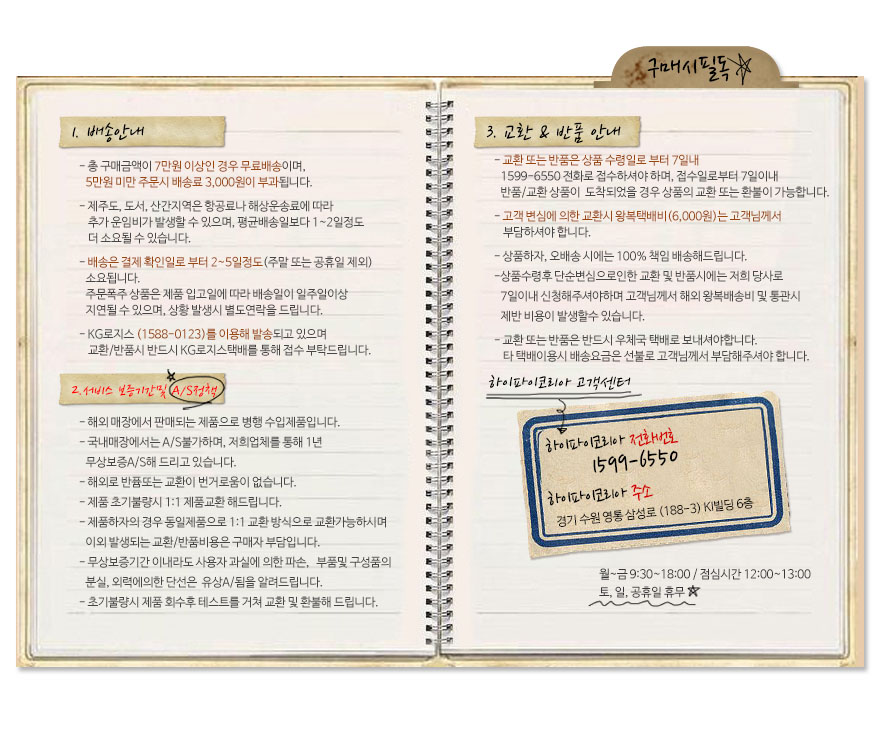 구매시필독
1. 배송안내
- 총 구매금액이 7만원 이상인 경우 무료배송이며,
5만원 미만 주문시 배송료 3,000원이 부과됩니다.
- 제주도, 도서, 산간지역은 항공료나 해상운송료에 따라
추가 운임비가 발생할 수 있으며, 평균배송일보다 1~2일정도
더 소요될 수 있습니다.
- 배송은 결제 확인일로 부터 2~5일정도(주말 또는 공휴일 제외)
소요됩니다.
주문폭주 상품은 제품 입고일에 따라 배송일이 일주일이상
지연될 수 있으며, 상황 발생시 별도연락을 드립니다.
- KG로지스 (1588-0123)를 이용해 발송되고 있으며
교환/반품시 반드시 KG로지스택배를 통해 접수 부탁드립니다.
2. 서비스 보증기간 및 A/S정책
- 해외 매장에서 판매되는 제품으로 병행 수입제품입니다.
- 국내매장에서는 A/S불가하며, 저희업체를 통해 1년
무상보증A/S해 드리고 있습니다.
- 해외로 반품또는 교환이 번거로움이 없습니다.
- 제품 초기불량시 1:1 제품교환 해드립니다.
- 제품하자의 경우 동일제품으로 1:1 교환 방식으로 교환가능하시며
이외 발생되는 교환/반품비용은 구매자 부담입니다.
- 무상보증기간 이내라도 사용자 과실에 의한 파손, 부품및 구성품의
분실, 외력에의한 단선은 유상A/됨을 알려드립니다.
- 초기불량시 제품 회수후 테스트를 거쳐 교환 및 환불해 드립니다.
3. 교환 & 반품 안내
- 교환 또는 반품은 상품 수령일로 부터 7일내
1599-6550 전화로 접수하셔야 하며, 접수일로부터 7일이내
반품/교환 상품이 도착되었을 경우 상품의 교환 또는 환불이 가능합니다.
- 고객 변심에 의한 교환시 왕복택배비(6,000원)는 고객님께서
부담하셔야 합니다.
- 상품하자, 오배송 시에는 100% 책임 배송해드립니다.
-상품수령후 단순변심으로인한 교환 및 반품시에는 저희 당사로
7일이내 신청해주셔야하며 고객님께서 해외 왕복배송비 및 통관시
제반 비용이 발생할수 있습니다.
- 교환 또는 반품은 반드시 우체국 택배로 보내셔야합니다.
타 택배이용시 배송요금은 선불로 고객님께서 부담해주셔야 합니다.
하이파이코리아 고객센터
하이파이코리아 전화번호
1599-6550
하이파이코리아 주소
경기 수원 영통 삼성로 (188-3) KI빌딩 6층
월~금 9:30~18:00 / 점심시간 12:00~13:00
토, 일, 공휴일 휴무